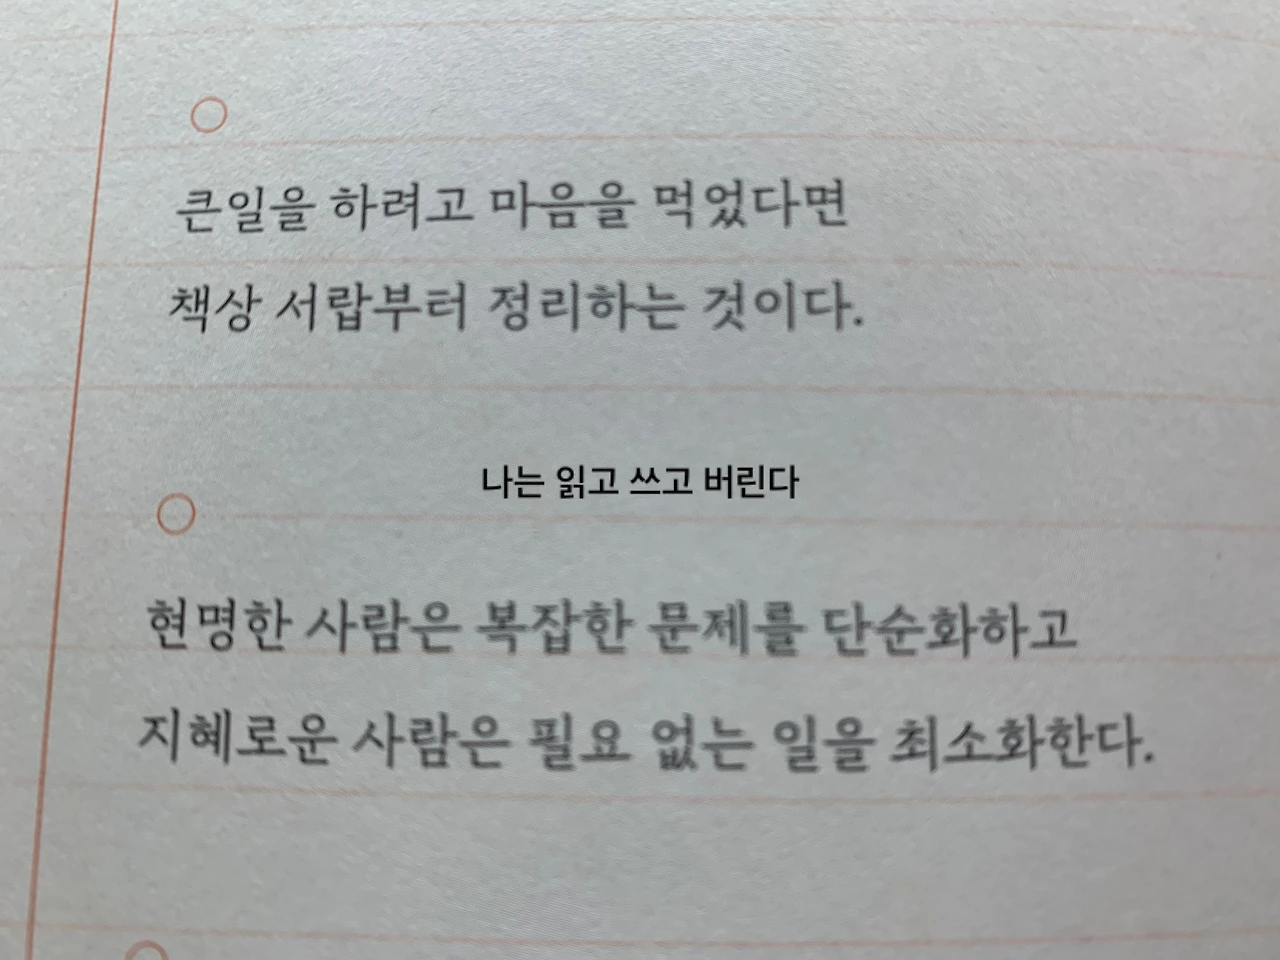 큰일을 하려고 마음을 먹었다면
책상 서랍부터 정리하는 것이다.
나는 읽고 쓰고 버린다
현명한 사람은 복잡한 문제를 단순화하고
지혜로운 사람은 필요 없는 일을 최소화한다.